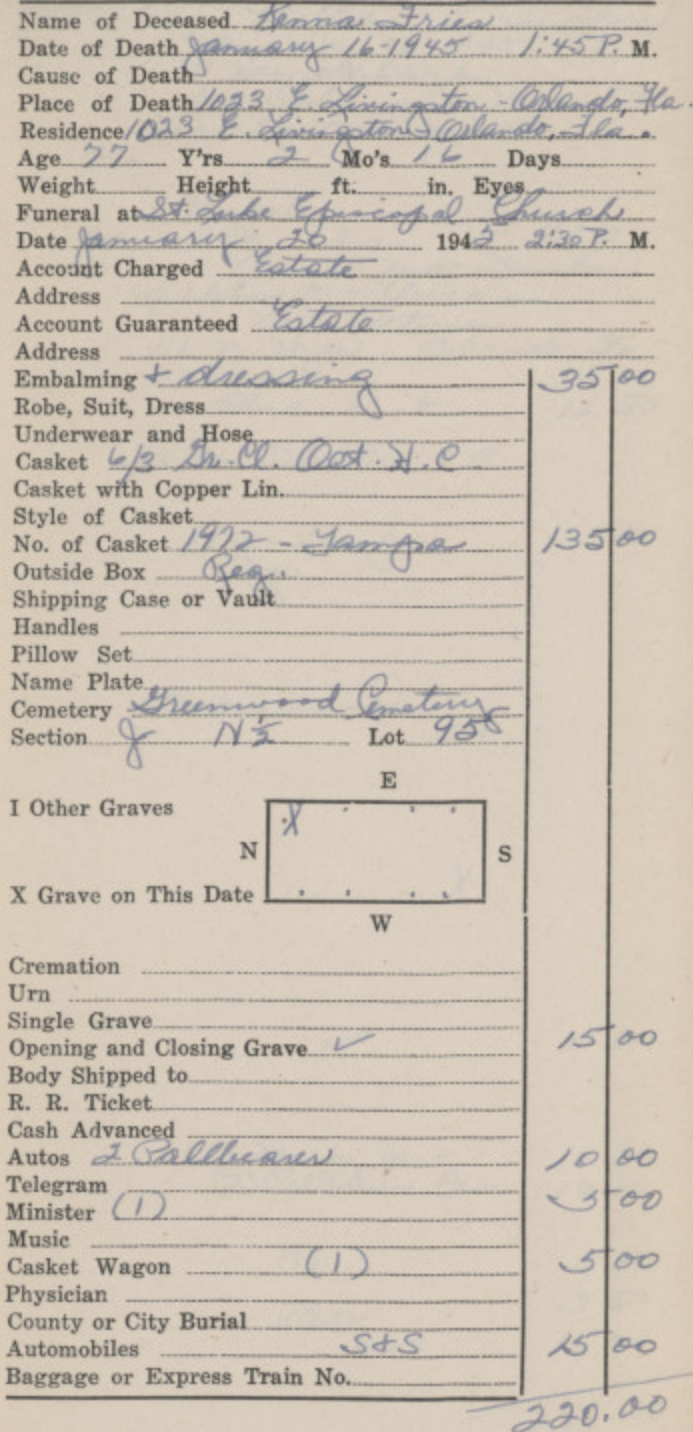 Name of Deceased Kenna Fries
Date of Death January 16-1945 1:45 P. M.
Cause of Death
Place of Death 1023 E Livingston - Orlando, Fla.
Residence 1023 E. Livingston - Orlando, Fla.
Age 77 Y'rs 2 Mo's 16 Days
Weight Height ft. in. Eyes
Funeral at St. Luke Episcopal Church
Date January 20 1945 2:30 P. M.
Account Charged Estate
Address
Account Guaranteed Estate
Address
Embalming + dressing 35 00
Robe, Suit, Dress
Underwear and Hose
Casket 6/3 Gr. Cl. Oct. H.C
Casket with Copper Lin.
Style of Casket
No. of Casket 1972 - Tampa 135 00
Outside Box Reg.
Shipping Case or Vault
Handles
Pillow Set
Name Plate
Cemetery Greenwood Cemetery
Section J N ½ Lot 95
E
I Other Graves X
N S
X Grave on This Date
W
Cremation
Urn
Single Grave
Opening and Closing Grave ✓ 15 00
Body Shipped to
R. R. Ticket
Cash Advanced
Autos 2 Pallbearer 10 00
Telegram
Minister (1) 5 00
Music
Casket Wagon (1) 5 00
Physician
County or City Burial
Automobiles S&S 15 00
Baggage or Express Train No.
220.00